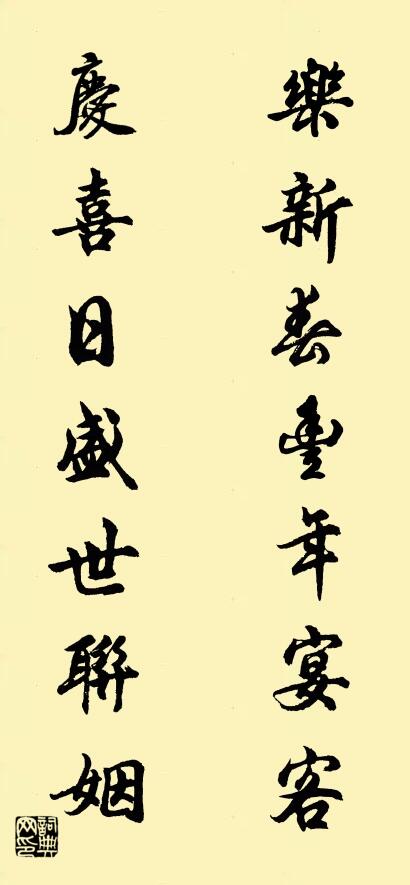 樂新春豐年宴客
慶喜日盛世聯姻
詞典網印